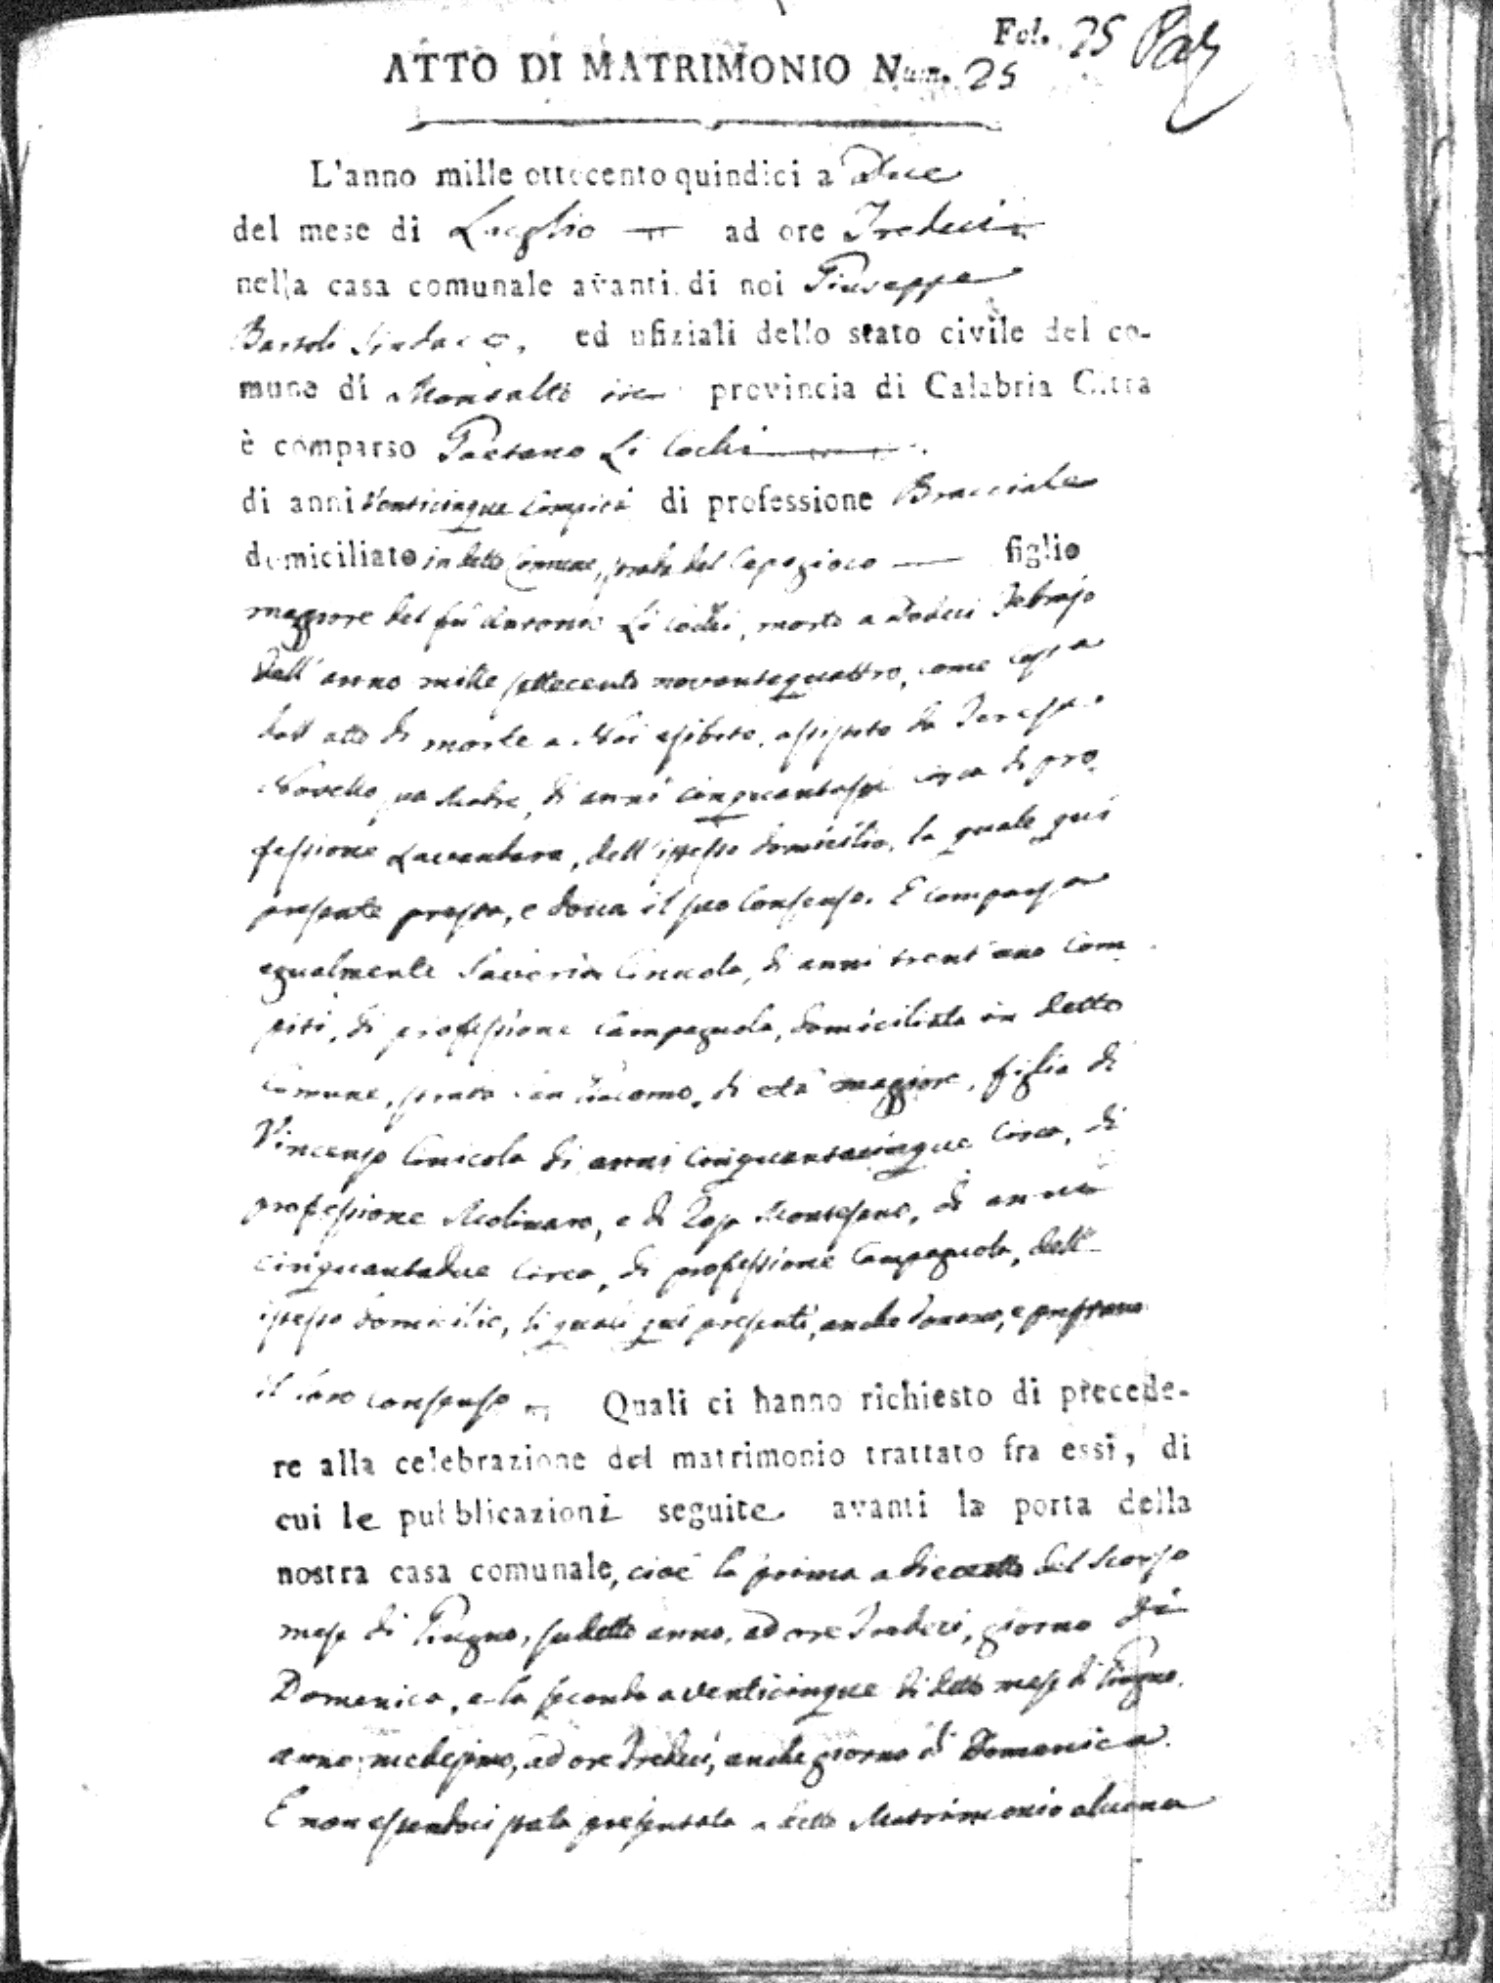 Fol. 25
ATTO DI MATRIMONIO Num. 25
L'anno mille ottocento quindici a due
del mese di Luglio ad ore Tredici
nella casa comunale avanti di noi Giuseppe
Bartoli Sindaco, ed ufiziali dello stato civile del co-
mune di Montalto in provincia di Calabria Citra
è comparso Gaetano Li Cochi
di anni Venticinque compiti di professione Bracciale
domiciliato in detto Comune, strada del Capogioco figlio
maggiore del fù Antonio Li Cochi, morto a Dodeci Febrajo
dell'anno mille settecento novantaquattro, come costa
dall'atto di morte a Noi esibito, assistito da Teresa
Novello sua Madre, di anni cinquantasei circa di pro
fessione Lavandara, dell'istesso domicilio, la quale quì
presente presta, e dona il suo Consenso. E comparsa
egualmente Saveria Conicola, di anni trent'uno Com
piti, di professione Campagnola, domiciliata in detto
Comune, strada San Giacomo, di età maggiore, figlia di
Vincenzo Conicola di anni Cinquantacinque Circa, di
professione Molinaro, e di Rosa Montesano, di anni
cinquantadue Circa, di professione Campagnola, dell'
istesso domicilio, li quali quì presenti, anche donano, e prestano
il loro consenso Quali ci hanno richiesto di precede-
re alla celebrazione del matrimonio trattato fra essi, di
cui le pubblicazioni seguite avanti la porta della
nostra casa comunale, cioè la prima a dieciotto del scorso
mese di Giugno, sudetto anno, ad ore Tredeci, giorno di
Domenica, e la seconda a venticinque di detto mese di Giugno,
anno medesimo, ad ore Tredeci, anche giorno di Domenica.
E non essendoci stata presentata a detto Matrimonio alcuna